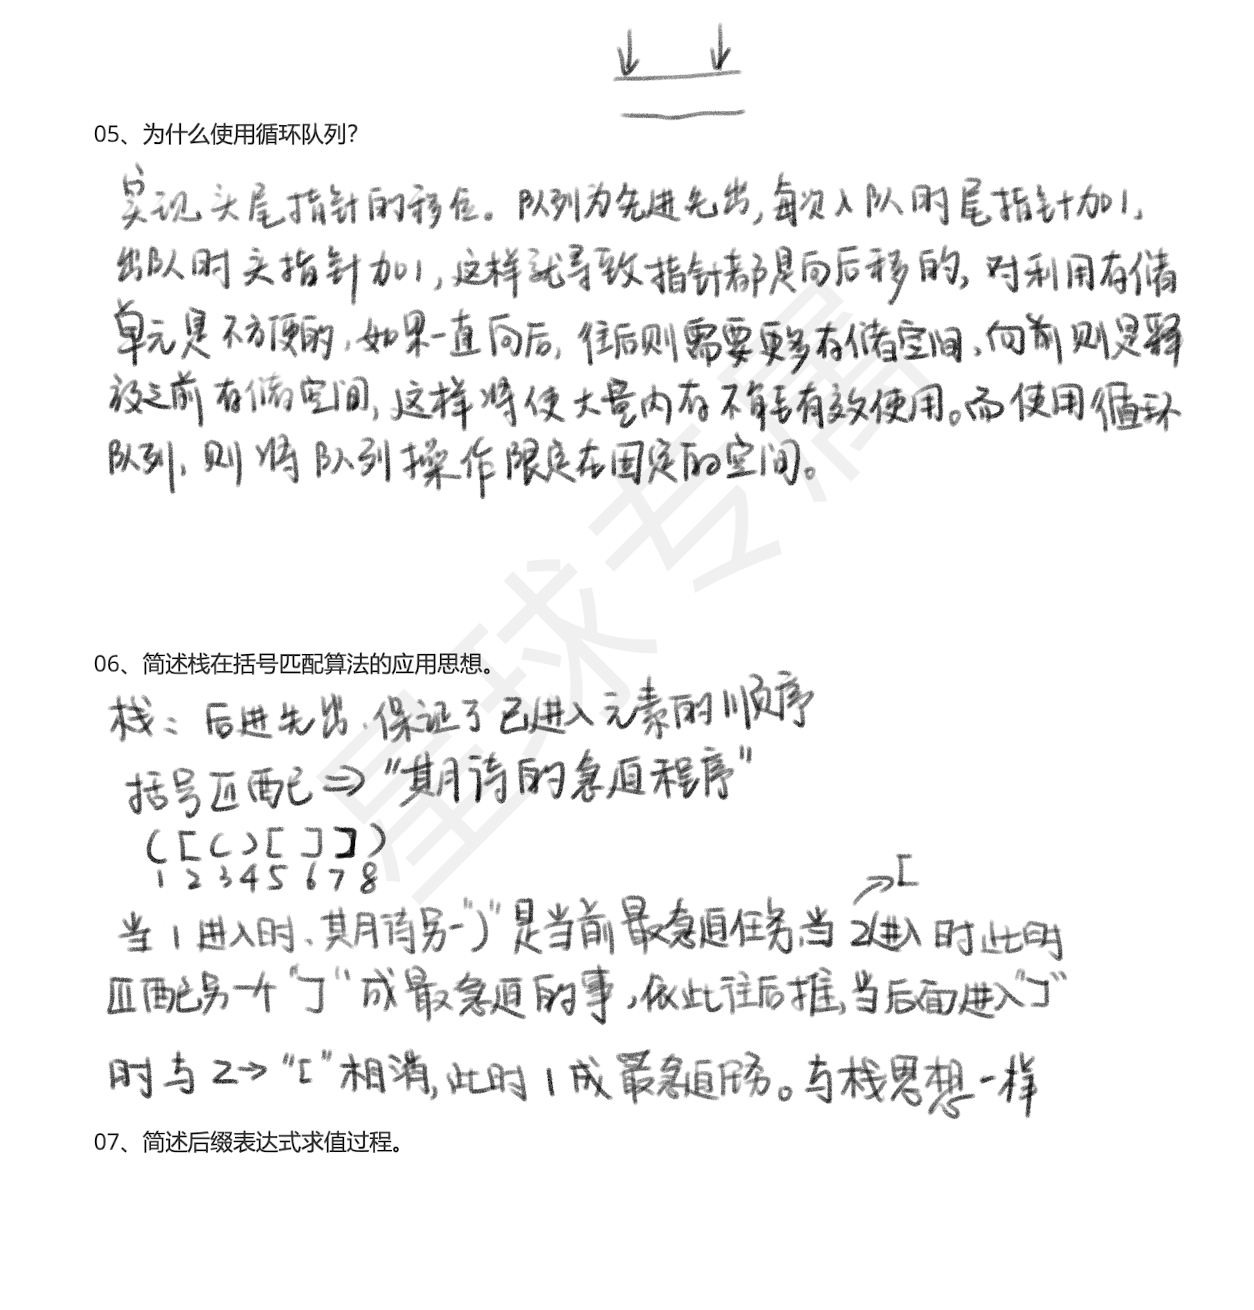 05、为什么使用循环队列？
实现头尾指针的移位。队列为先进先出，每次入队时尾指针加1，
出队时头指针加1，这样就导致指针都是向后移的，对利用存储
单元是不方便的，如果一直向后，往后则需要更多存储空间，向前则是释
放之前存储空间，这样将使大量内存不能有效使用。而使用循环
队列，则将队列操作限定在固定的空间。
06、简述栈在括号匹配算法的应用思想。
栈：后进先出，保证了已进入元素的顺序
括号匹配⇒"期待的急迫程序"
([()[]])
1 2 3 4 5 6 7 8
[
当1进入时、其期待另一")"是当前最急迫任务，当2进入时此时
匹配另一个"]"成最急迫的事，依此往后推，当后面进入"]"
时与2→"["相消，此时1成最急迫任务。与栈思想一样
07、简述后缀表达式求值过程。
星球专属